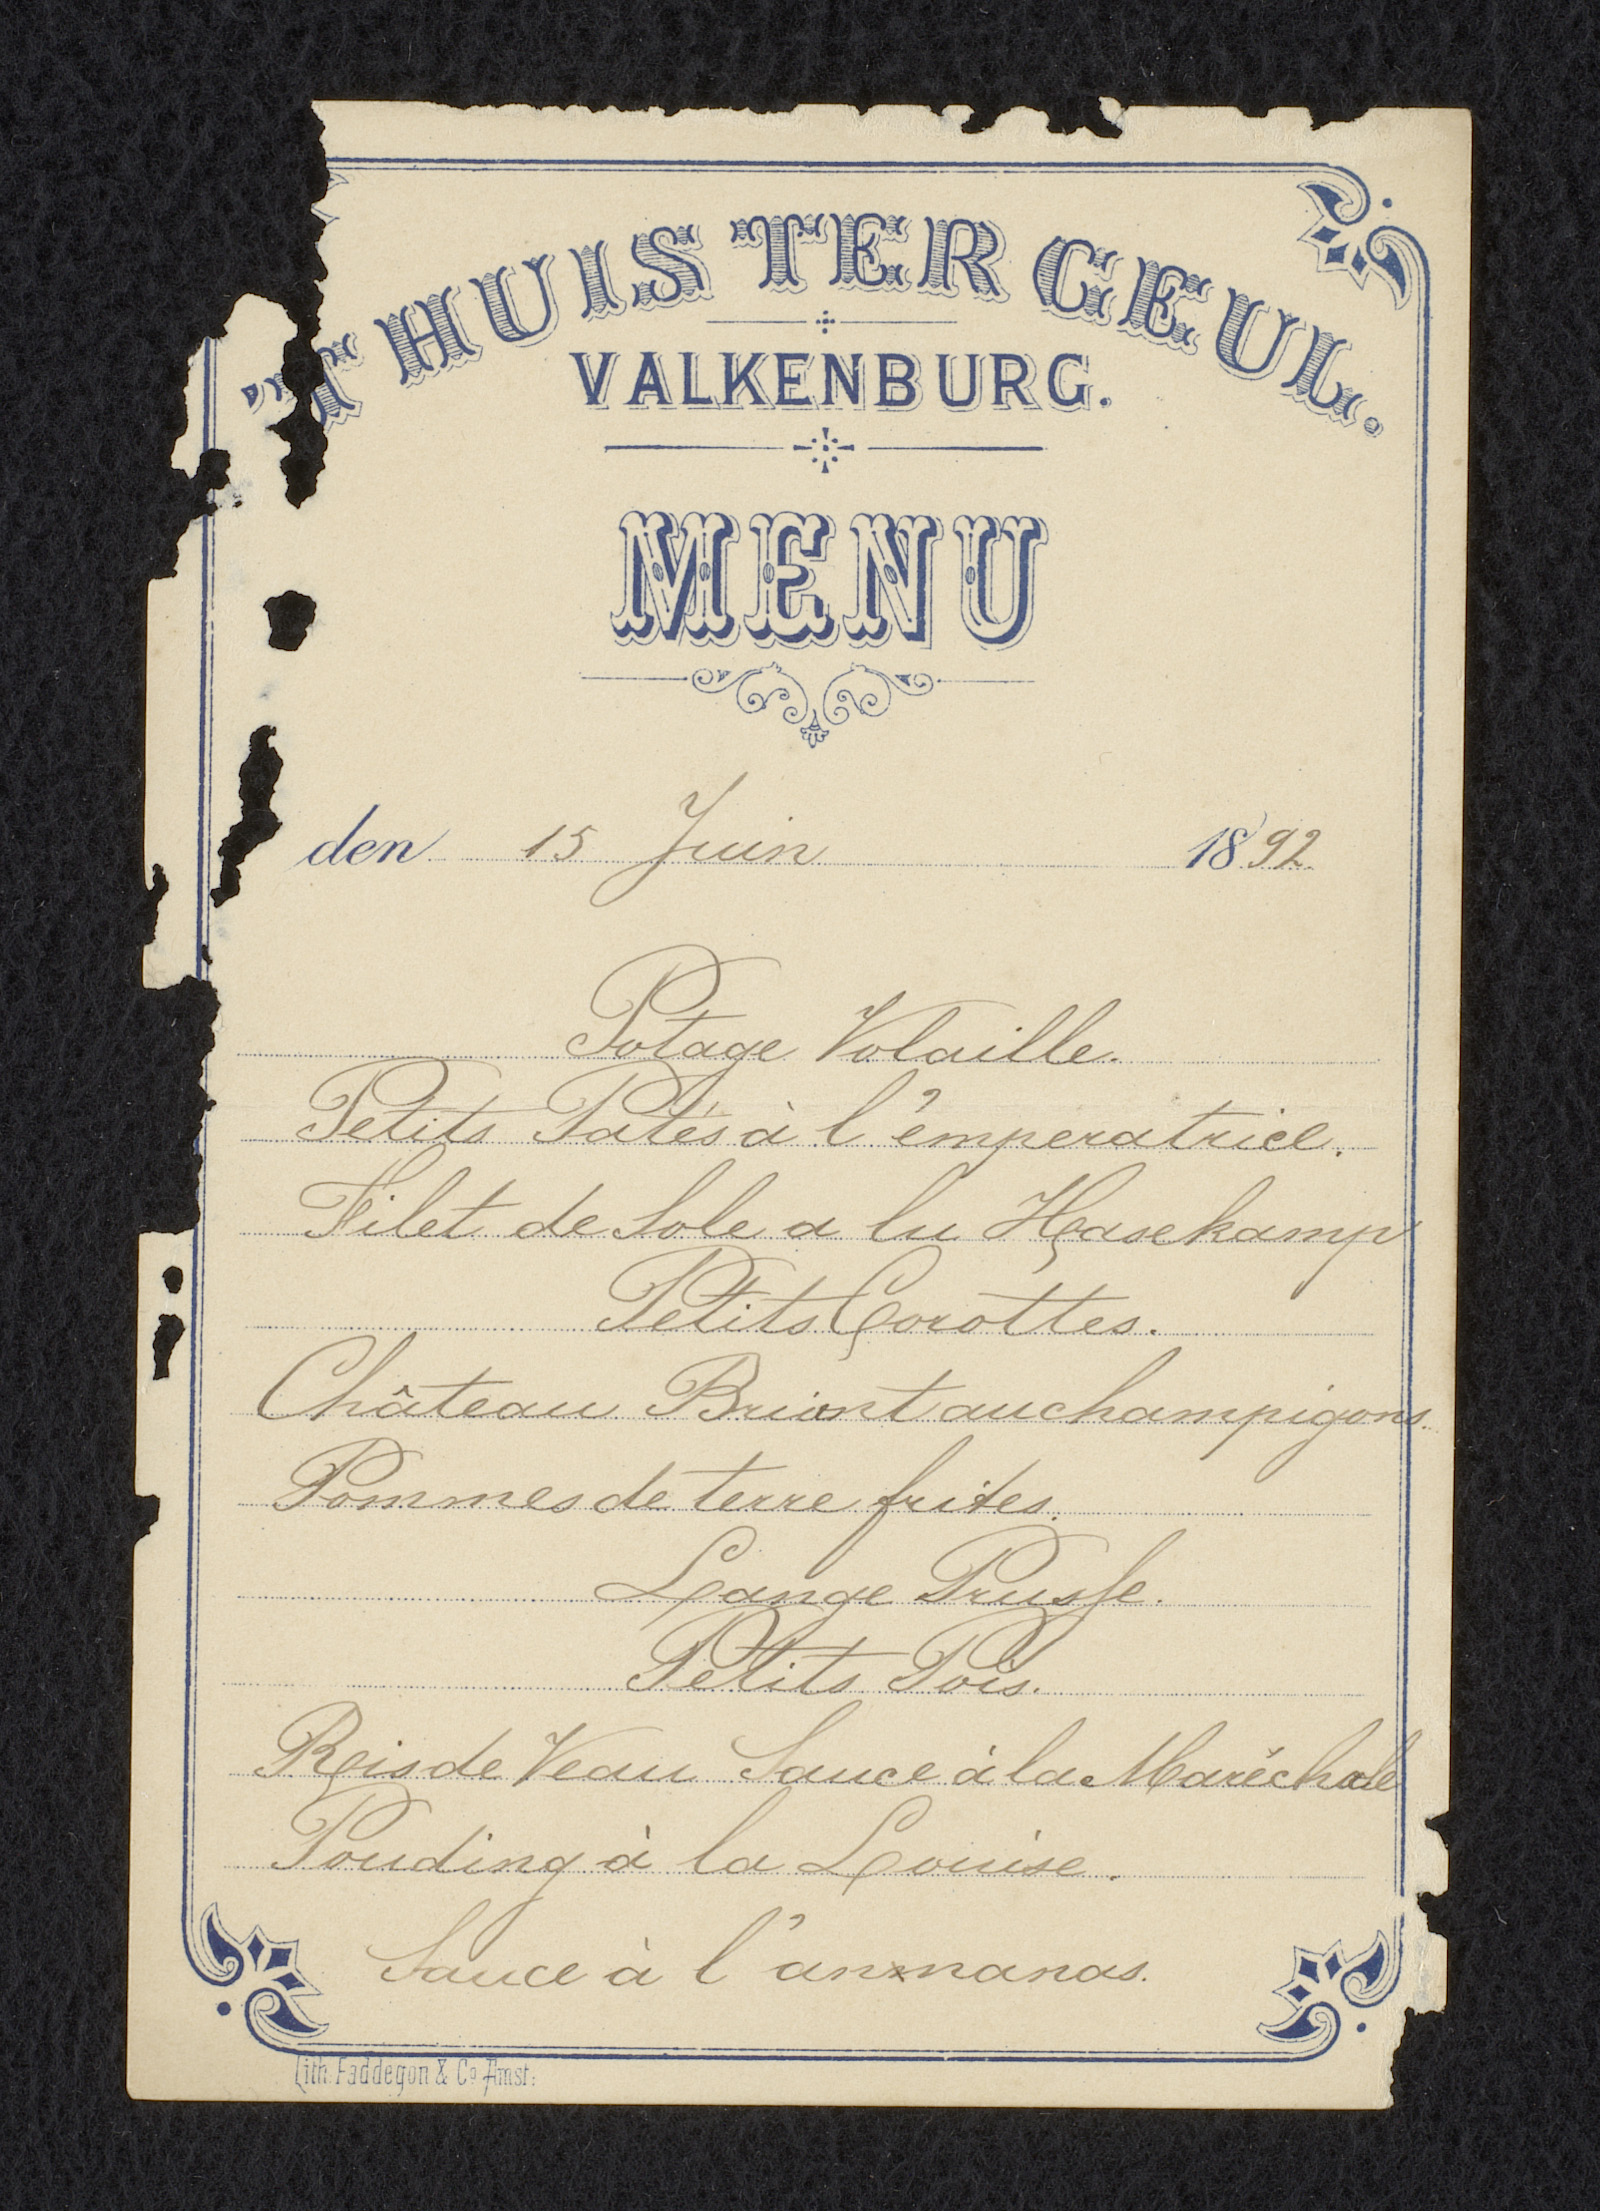 'T HUIS TER GEUL.
VALKENBURG.
MENU
den 15 Juin 1892
Potage Volaille.
Petits Patés à l'emperatrice.
Filet de Sole a la Hasekamp
Petits Corottes.
Château Briant au champigons.
Pommes de terre frites.
Lange Prusse.
Petits Pois.
Reis de Veau Sauce à la Maréchale
Pouding à la Louise.
Sauce à l'annanas.
Lith. Faddegon & Co Amst: